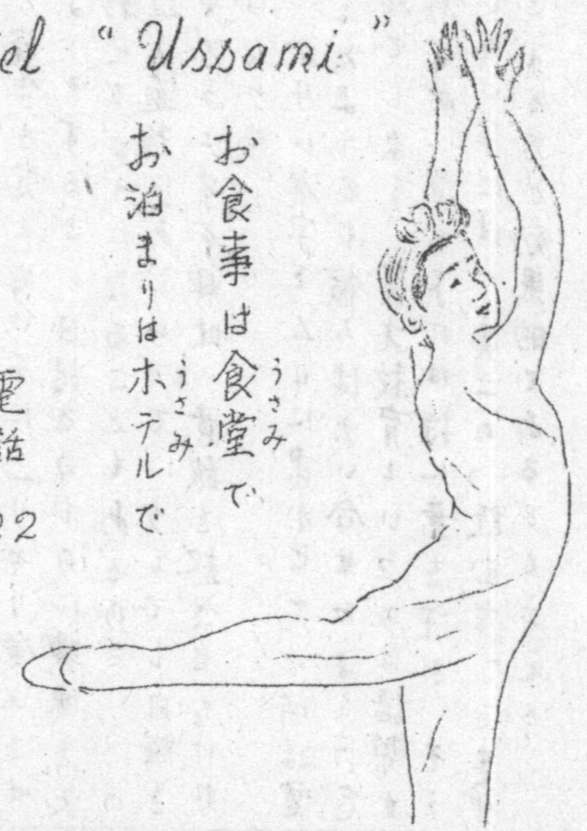 el "Ussami"
お食事は食堂で
うさみ
お泊まりはホテルで
うさみ
電話
22